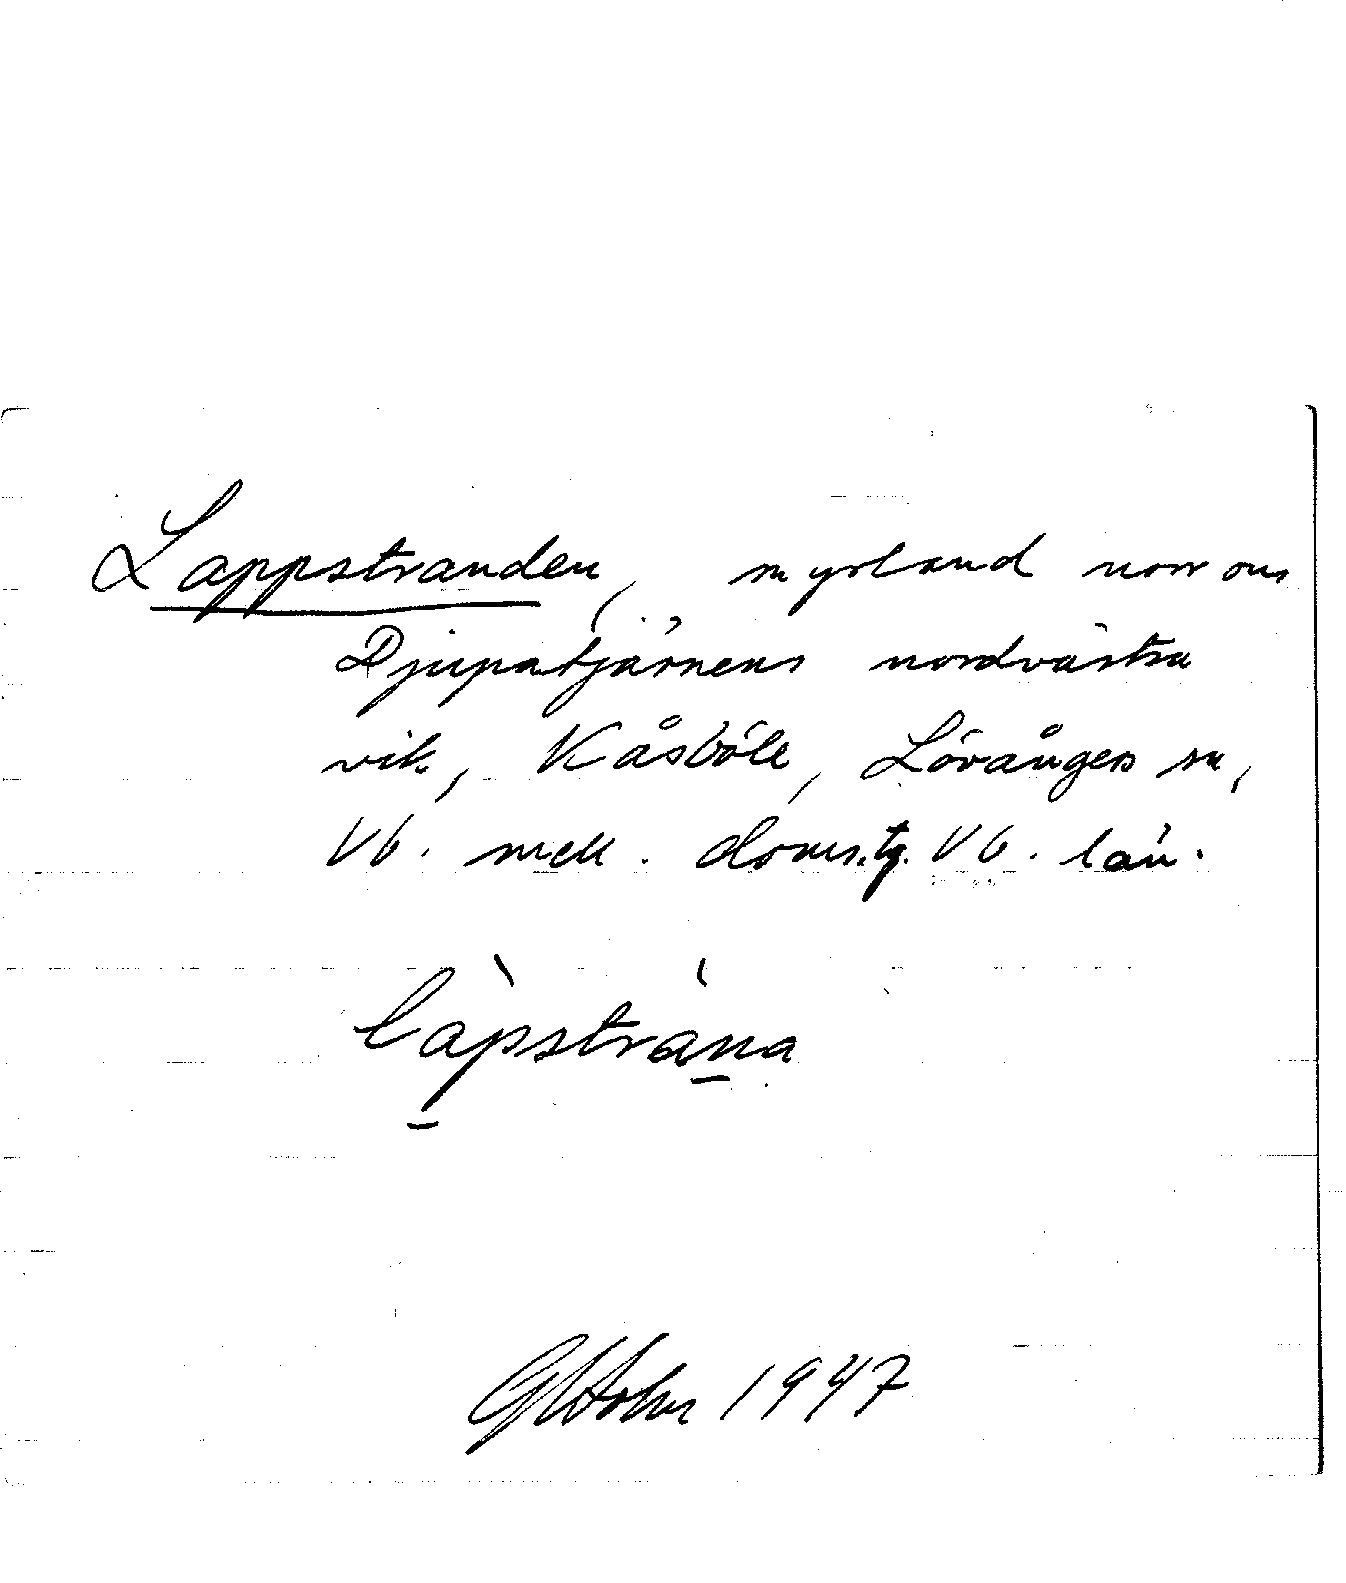 Lappstranden, myrland norr om
Djupatjärnens nordvästra
vik, Kåsböle, Lövångers sn,
Vb. mell. doms.tg. Vb. län.
làpstràna
1947